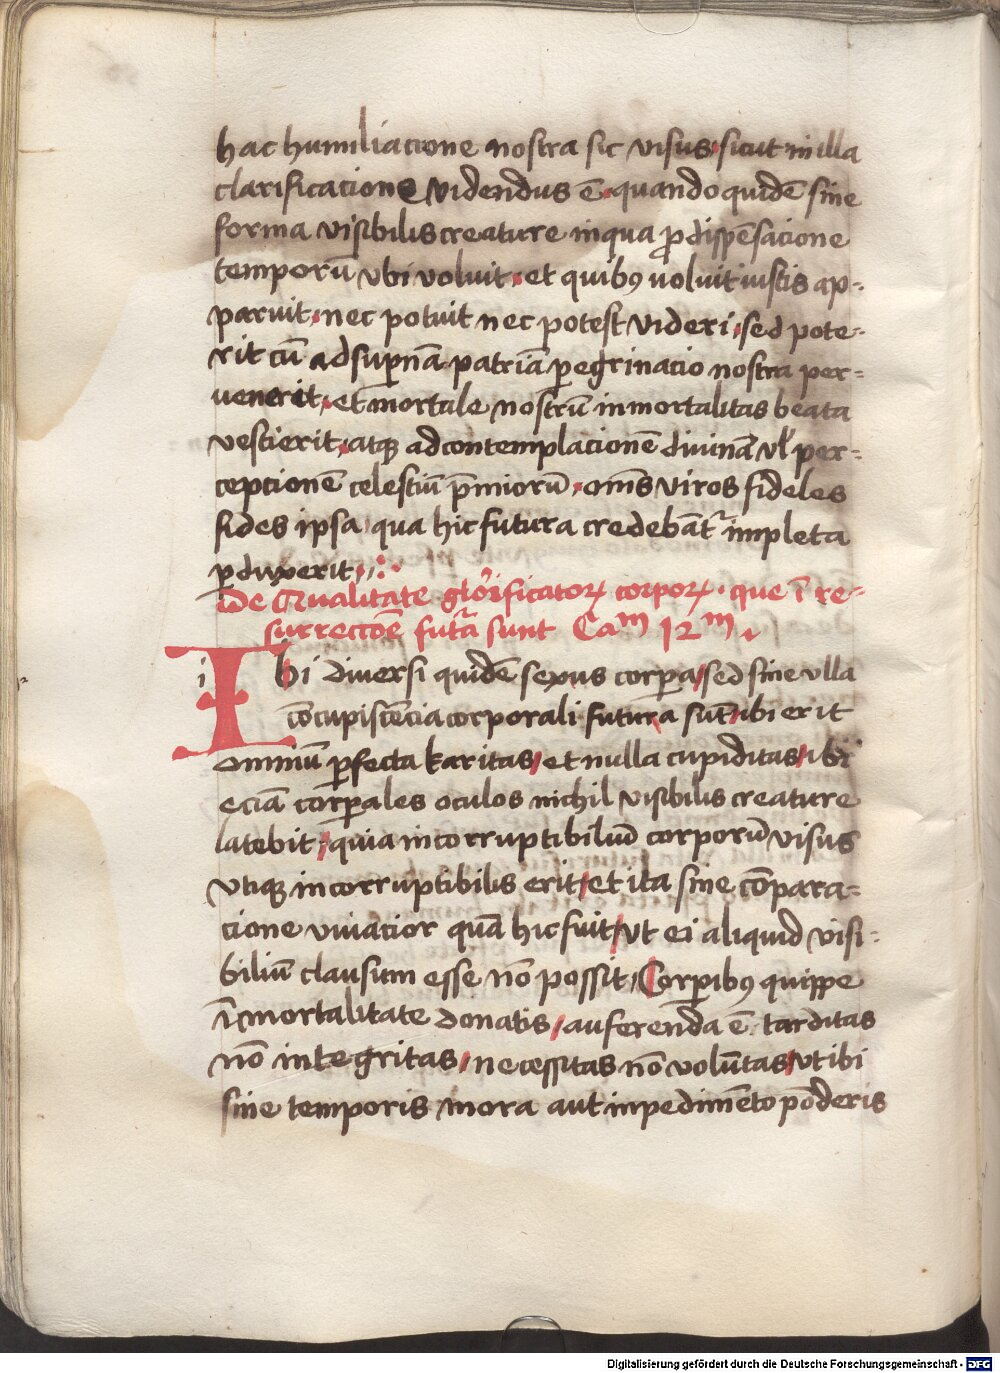 hac humiliacione nostra sic visus· sicut in illa
clarificacione videndus ē· quando quidē sine
forma visibilis creature in qua ꝓ dispēsacione
temporū vbi voluit· et quibꝰ uoluit iustis ap-
paruit· nec potuit nec potest videri· sed pote-
rit cū ad sup̄nā patriā ꝑegrinacio nostra per-
uenerit· et mortale nostrū inmortalitas beata
vestierit· atqꝫ ad contemplacionē diuinā vl̓ per-
ceptionē celestiū p̄miorū· om̄s viros fideles
fides ipsa qua hic futura credebāt᷑ impleta
ꝑduxerit·
De Qualitate glōrificatoꝝ corpoꝝ· que ī re-
surreccōe futā sunt Cam 12m
i
Ibi diuersi quidē sexus corꝑa/ sed sine vlla
cōcupiscēcia corporali futura sūt/ ibi erit
omniū ꝑfecta karitas/ et nulla cupiditas/ ibi
eciā corꝑales oculos nichil visibilis creature
latebit/ quia incorruptibiliū corporū visus
vtiqꝫ incorruptibilis erit/ et ita sine cōpara-
cione viuacior quā hic fuit/ ut ei aliquid visi-
biliū clausum esse nō possit/ Corꝑibꝰ quippe
īmortalitate donatis/ auferenda ē tarditas
nō integritas/ necessitas nō volūtas/ vt ibi
sine temporis mora aut inpedimēto pōderis
Digitalisierung gefördert durch die Deutsche Forschungsgemeinschaft - DFG